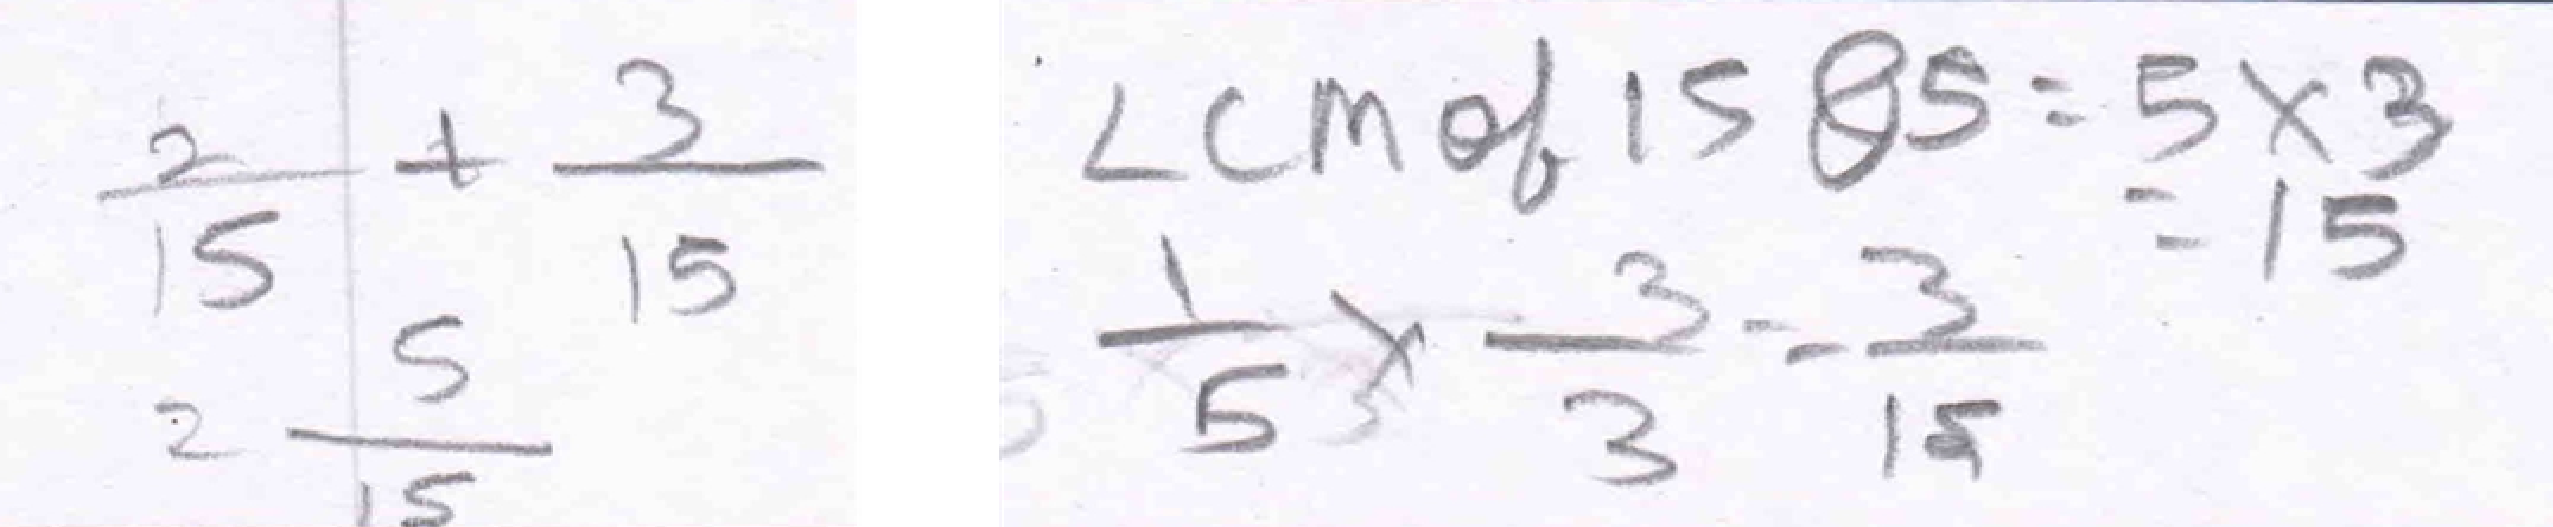 2/15 + 3/15
= 5/15
LCM of 15 & 5 = 5 × 3
= 15
1/5 × 3/3 = 3/15